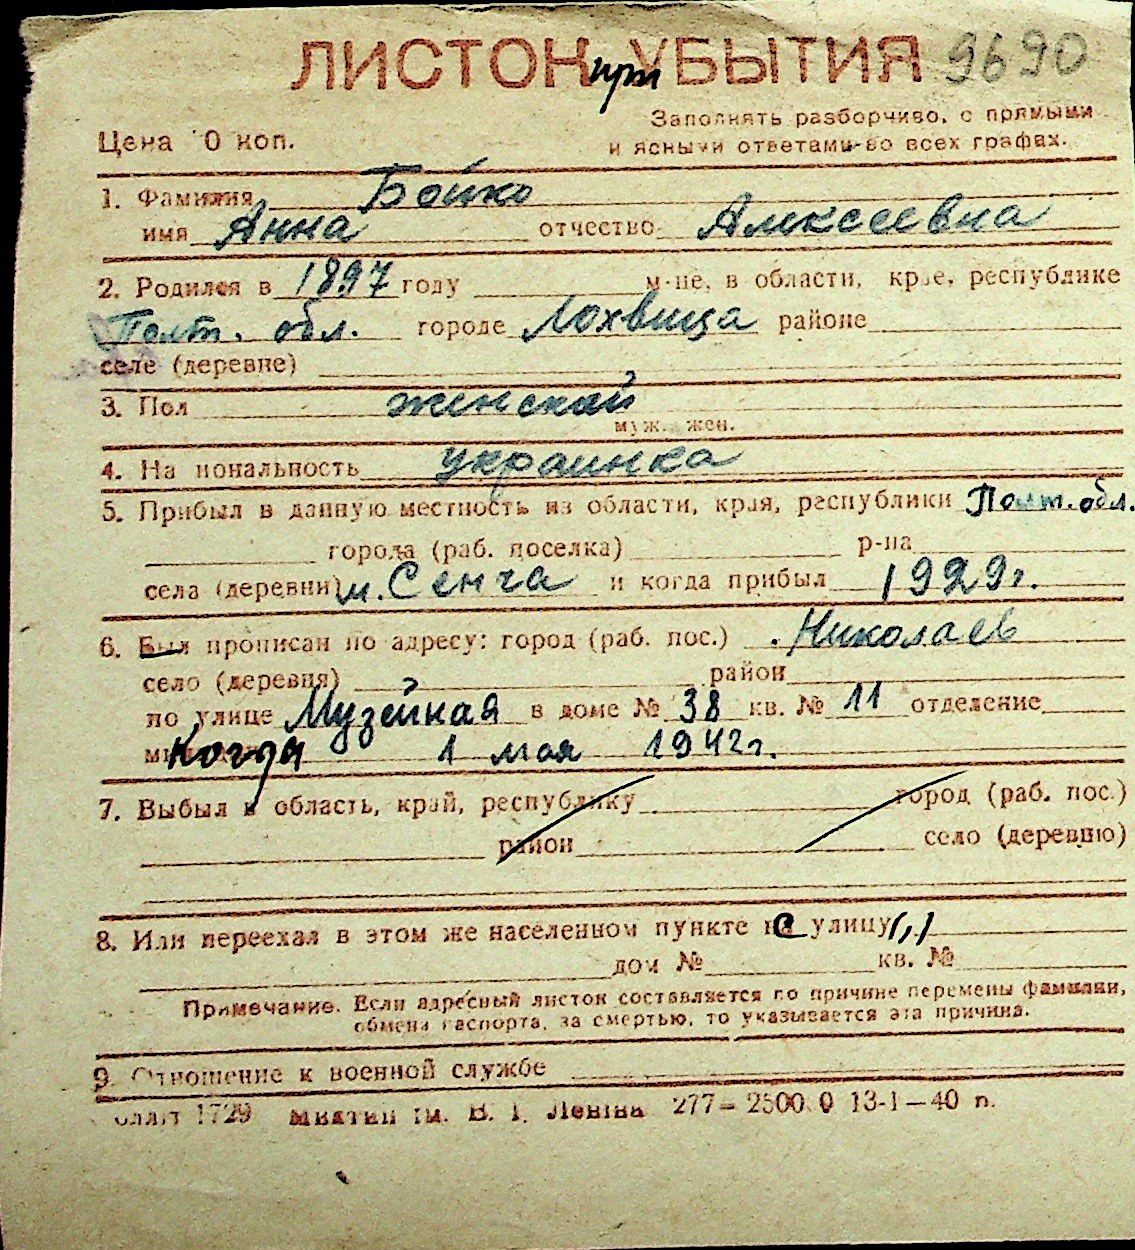 ЛИСТОК при УБЫТИЯ 9690
Заполнять разборчиво, с прямыми
Цена 10 коп. и ясными ответами во всех графах.
1. Фамилия Бойко
имя Анна отчество Алексеевна
2. Родился в 1897 году м-це, в области, крае, республике
Полт. обл. городе Лохвица районе
селе (деревне)
3. Пол женской
муж. жен.
4. Национальность украинка
5. Прибыл в данную местность из области, края, республики Полт. обл.
города (раб. поселка) р-на
села (деревни) м. Сенча и когда прибыл 1929 г.
6. Был прописан по адресу: город (раб. пос.) Николаев
село (деревня) район
по улице Музейная в доме № 38 кв. № 11 отделение
когда 1 мая 1942 г.
7. Выбыл в область, край, республику город (раб. пос.)
район село (деревню)
8. Или переехал в этом же населенном пункте с улицу (,)
дом № кв. №
Примечание. Если адресный листок составляется по причине перемены фамилии,
обмена паспорта, за смертью, то указывается эта причина.
9. Отношение к военной службе
1729 ім. В. І. Леніна 277—2500.0 13-I—40 п.